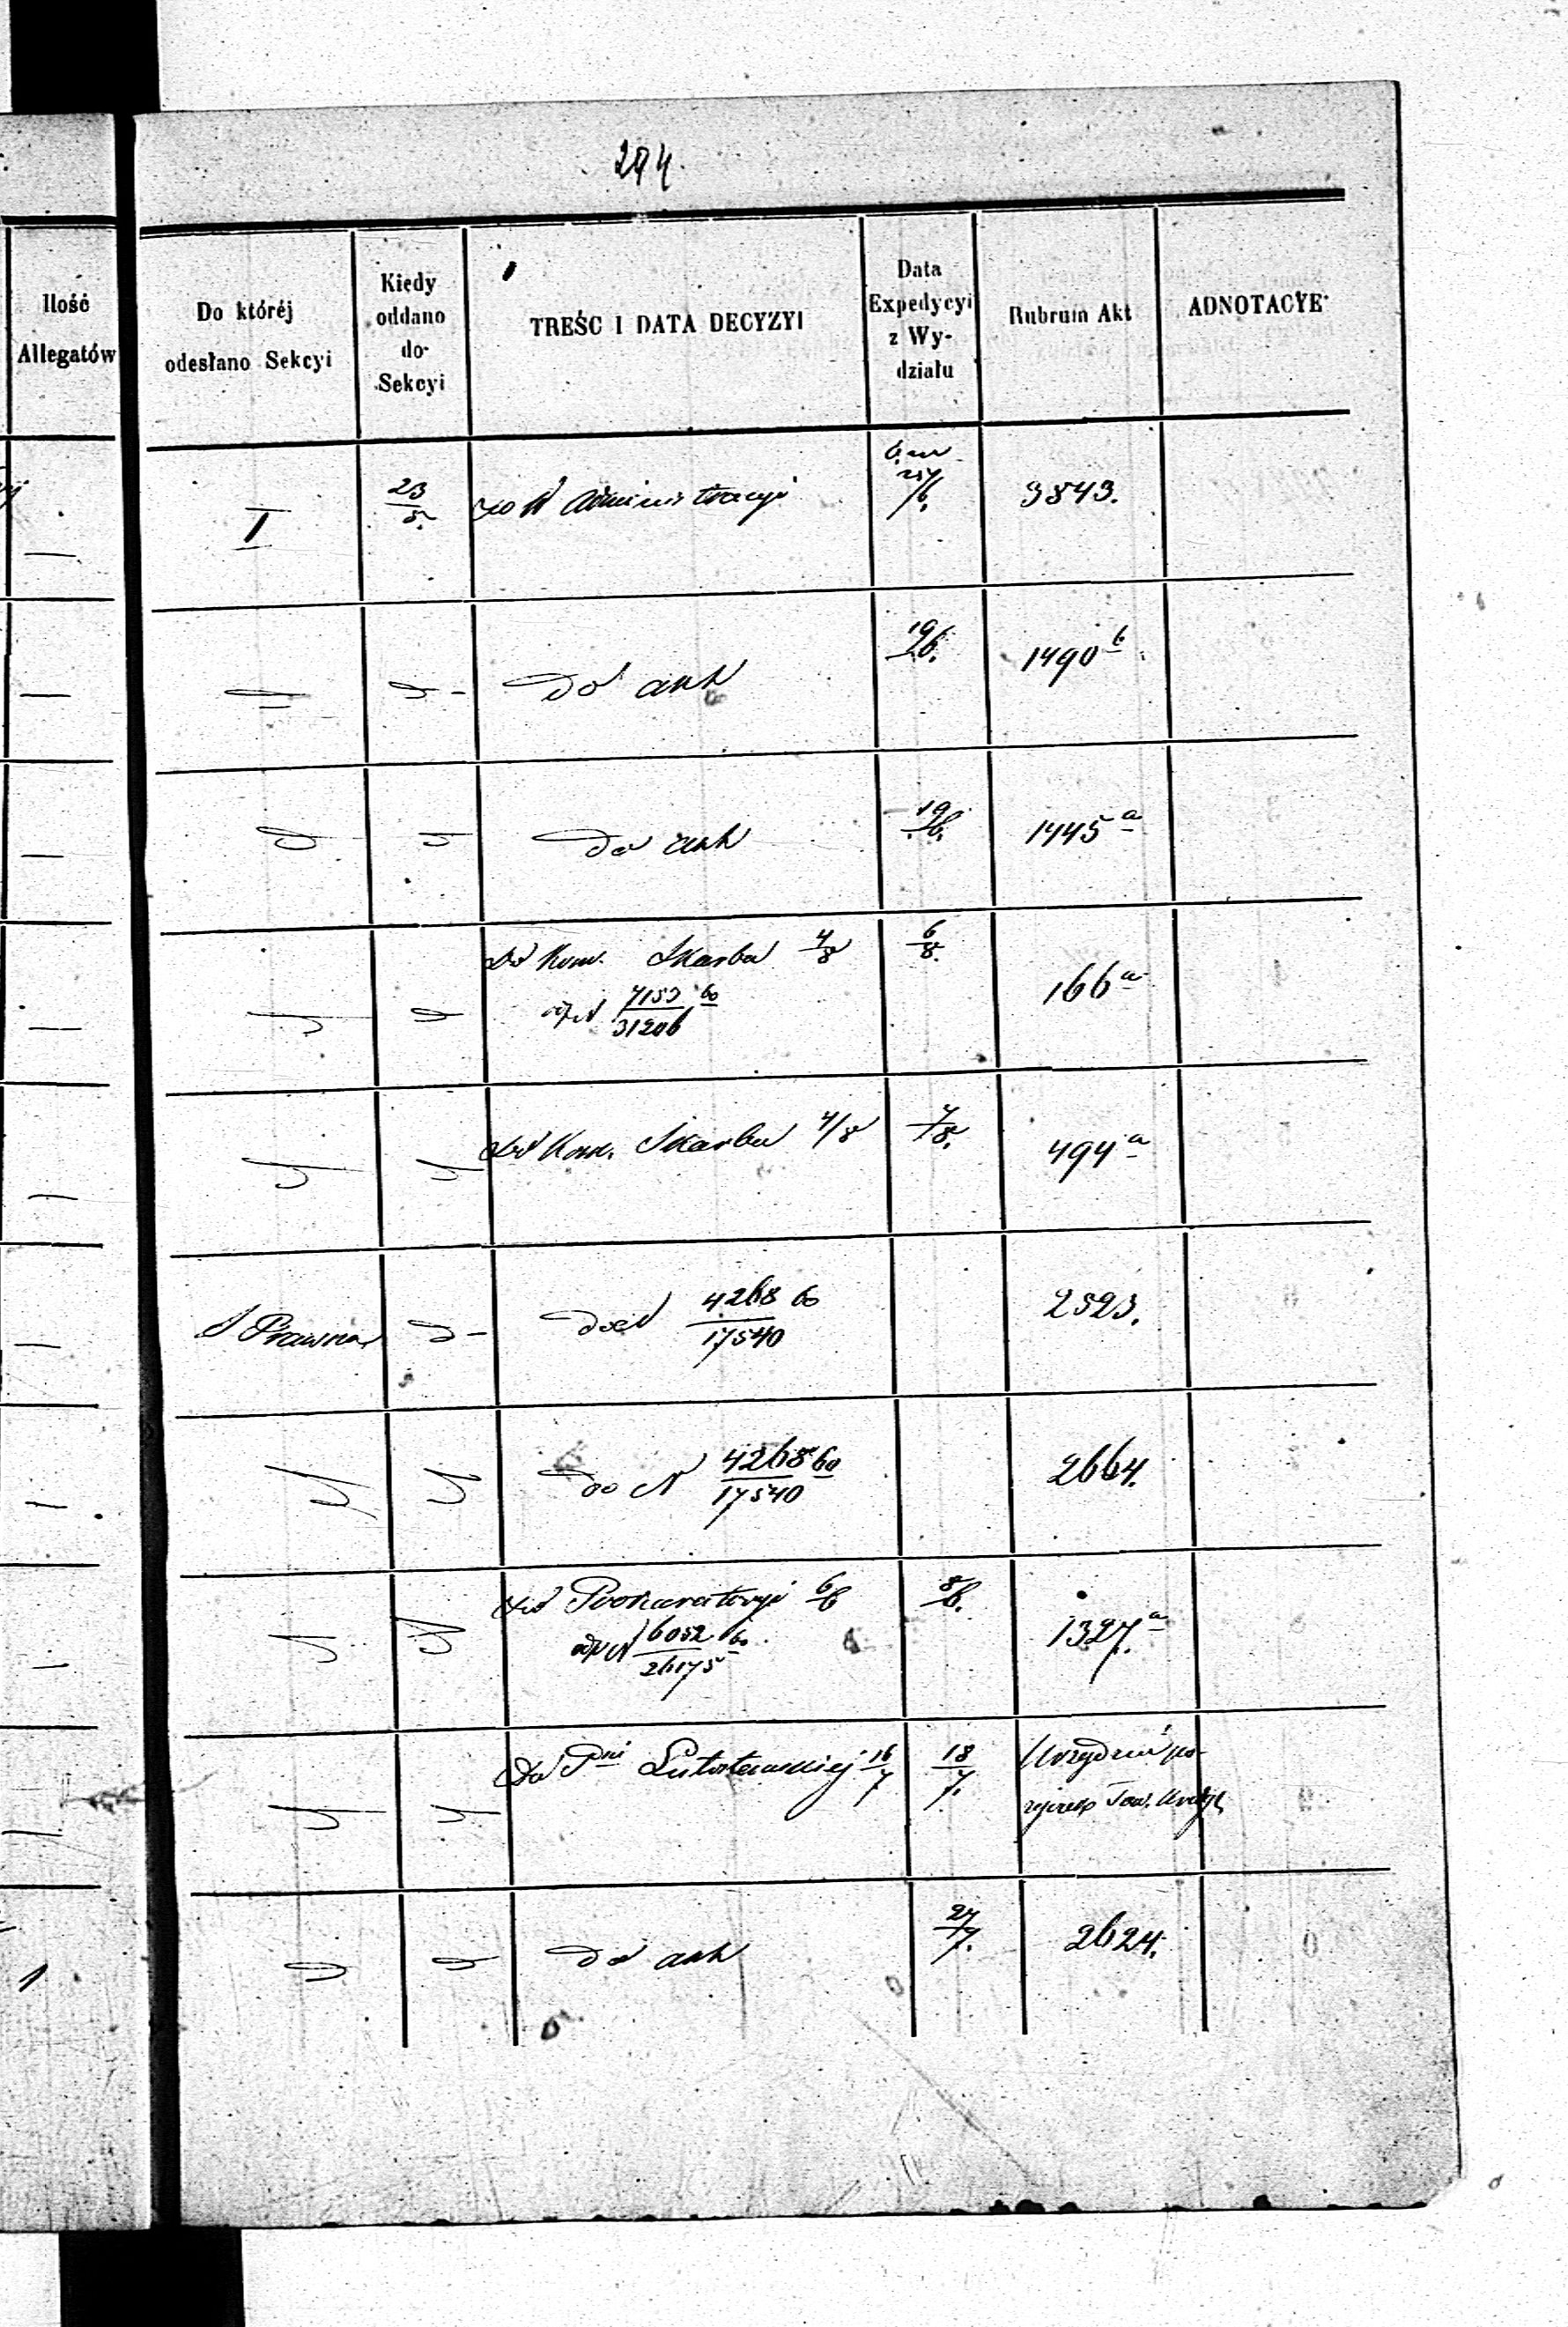 294.
Ilość
Allegatów
Do któréj
odesłano Sekcyi
Kiedy
oddano
do
Sekcyi
TREŚC I DATA DECYZYI
Data
Expedycyi
z Wy-
działu
Rubrum Akt
ADNOTACYE
I
23/5.
do W Administracyi
3843.
do akt
19/6.
1490 b
do akt
19/6.
1445 a
Do Kom. Skarbu 4/8
6/8.
N 7153 60
31206
166 a
Do Kom. Skarbu 4/8
7/8.
494 a
S Prawna
do N 4268 60
17540
2523.
do N 4268 60
17540
2664.
do Prokuratoryi 6/6
8/6.
N 6052 60
26175
1327. a
Do Pni Lutosławskiej 16/7
18/7.
Tow. Kredyt
do akt
27/7.
2624.
1